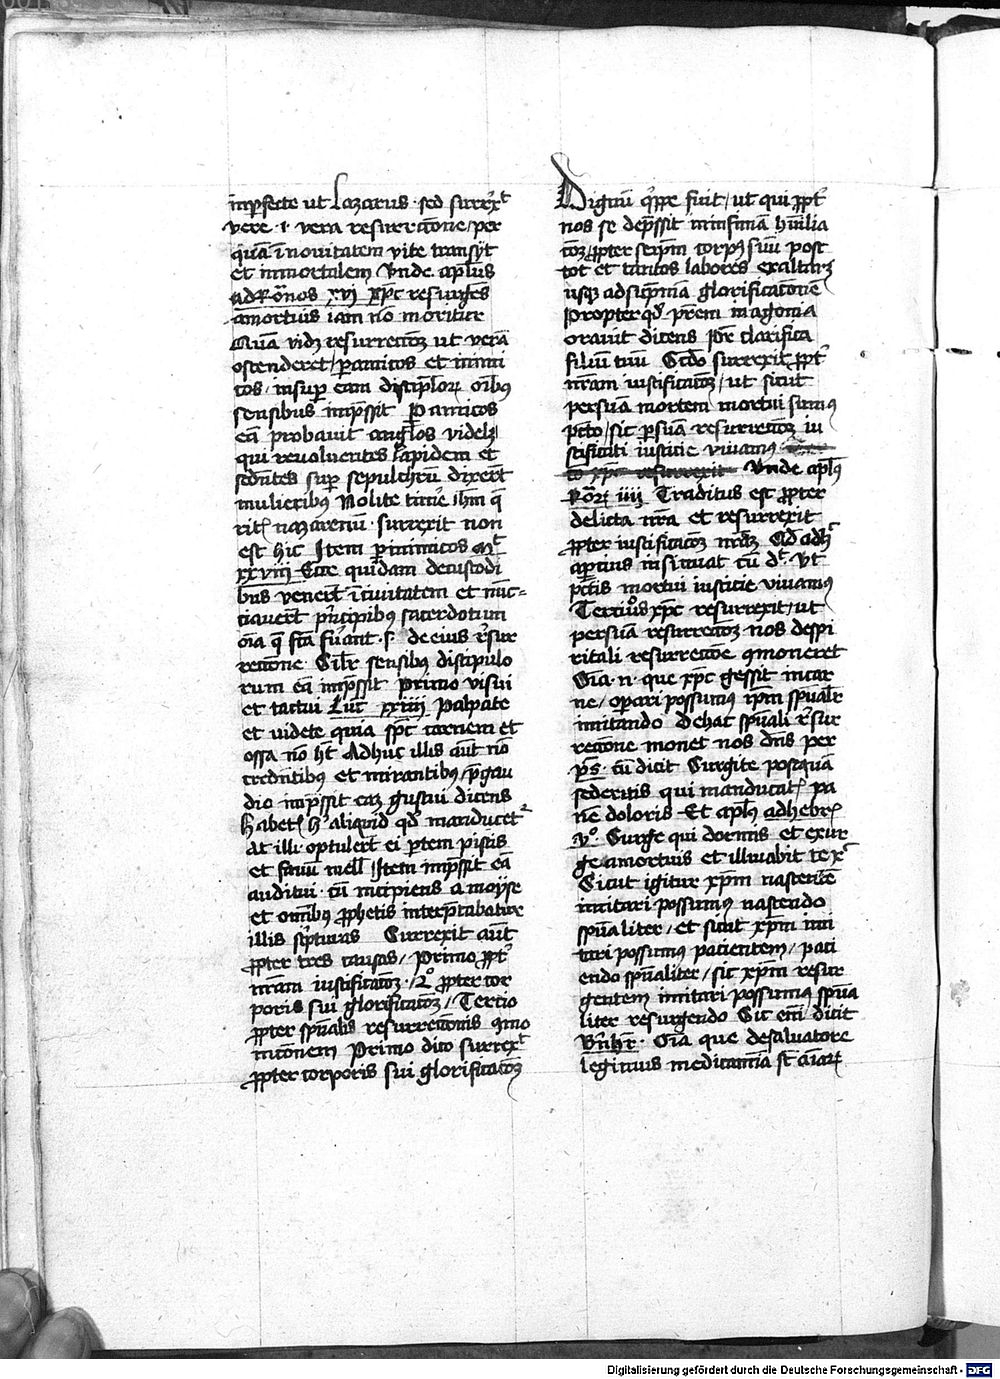 imperfecte ut Lazarus sed surrexit
vere .i. vera resurrectione per
quã ĩ novitatem vite transijt
et immortalem Vnde apl'us
ad Rõnos xvi xp̄c resurgẽs
a mortuis iam nõ moritur
Quã vidz resurrectõz ut verã
ostenderet / p amicos et inimi
cos / insup eam discipl'oꝝ oĩbꝰ
sensibus imp̃ssit P amicos
eã probavit angl'os videlz
qui revoluentes lapidem et
sedẽtes sup sepulchrũ dixer̃t
mulieribus Nolite timẽ ih̃m q̃
ritis nazarenũ surrexit non
est hic Item p inimicos Mt
xxviij Ecce quidam de custodi
bus vener̃t ĩ civitatem et nũc=
ciaver̃t pricipibꝰ sacerdotum
oĩa q̃ fcã fu̾ant .s. de eius r̾sur
rectione Silr sensibꝰ discipulo
rum eã imp̃ssit Primo visui
et tactui Luc xxiiij Palpate
et videte quia sp̃c carnem et
ossa nõ hẽt Adhuc illis aũt nõ
credẽtibꝰ et mirantibꝰ p̃ gau
dio imp̃ssit eaz gustui dicens
Habetis h' aliquid qd' manducet̾
At illi optuler̃t ei p̃tem piscis
et favũ mell' Item imp̃ssit eã
auditui cũ incipiens a moyse
et omĩbus ꝓphetis interp̃tabatur
illis sc̾pturas Surrexit aũt
ꝓpter tres causas / Primo ꝓpt̾
nr̃am iustificatõz / 2º ꝓpter cor
poris sui glorificatõz / Tercio
ꝓpter sp̃ualis resurrectionis amo
nicõnem Primo dico surrexit
ꝓpter corporis sui glorificatõz
Dignũ q̾ppe fuit / ut qui ꝓpt̾
nos se dep̃ssit in infimã humilia
tõz ꝓpter seip̃m corpꝰ suũ post
tot et tantos labores exaltaret
usqz ad sup̃mã glorificatõnẽ
Propter qd' p̃rem in agonia
oravit dicens P̃r clarifica
filiũ tuũ Scdo surrexit ꝓpt̾
nr̃am iustificatõz / ut sicut
per suã mortem mortui sumꝰ
pcc̃o / sic p suã resurrectõz iu
stificati iusticie vivamus
Vnde apl'ꝰ
Roꝝ iiij Traditus est ꝓpter
delicta nr̃a et resurrexit
ꝓpter iustificatõz nr̃az Ad adhuc
apcius
pcc̃is mortui iusticie vivamꝰ
Tercio xp̄c resurrexit / ut
per suã resurrectõz nos de spi
ritali resurrectõe amoneret
Oĩa .n. que xp̄c gessit in car
ne / operari possumꝰ ip̃m sp̃ualr
imitando De hac sp̃uali r̾sur
rectione monet nos dñs per
p̃s. cũ dicit Surgite postquã
sederitis qui manducatis pa
nẽ doloris Et apl'ꝰ ad hebr̾
vº. Surge qui dormis et exur
ge a mortuis et illu̾abit te x̾
Sicut igitur xp̃m nascentẽ
imitari possumus nascendo
sp̃ualiter / et sicut xp̃m imi
tari possumus pacientem / paci
endo sp̃ualiter / sic xp̃m resur
gentem imitari possumus sp̃ua
liter resurgendo Sic em̃ dicit
Bern̾hr. Oĩa que de salvatore
legimus medicamĩa st̃ aĩarꝝ
Digitalisierung gefördert durch die Deutsche Forschungsgemeinschaft - DFG